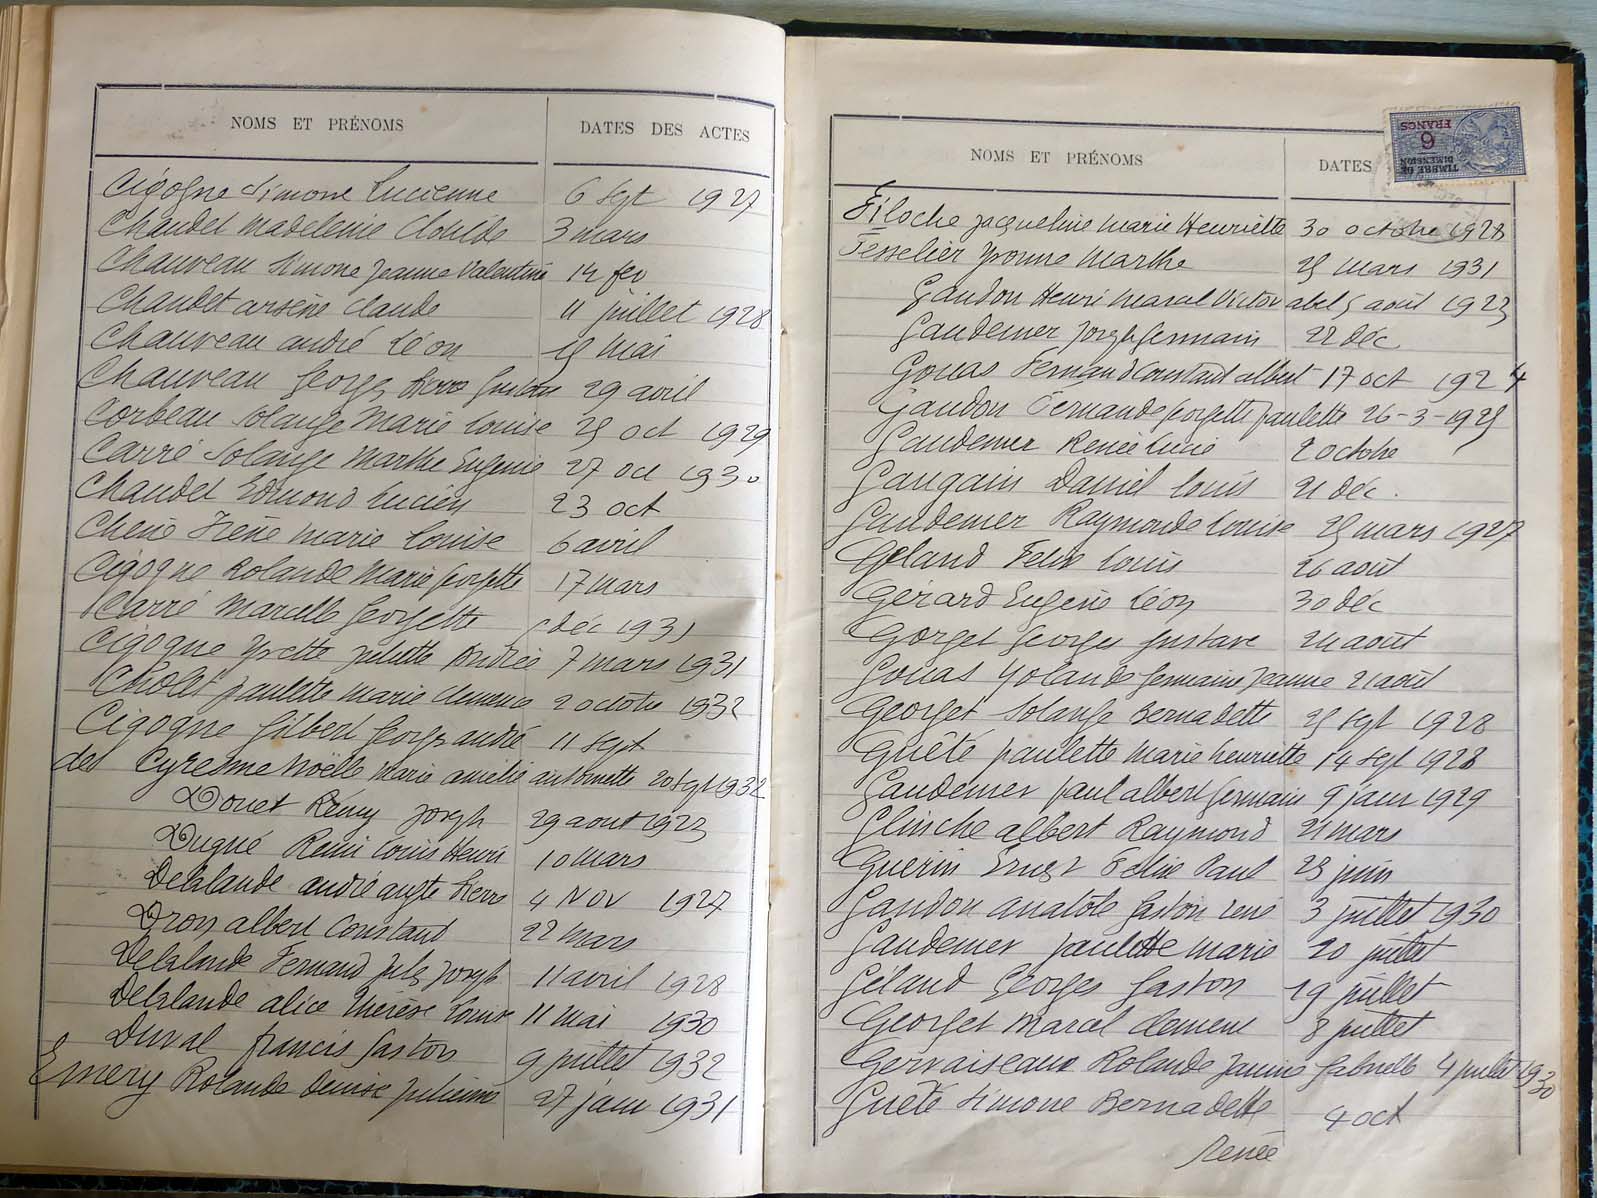 NOMS ET PRÉNOMS DATES DES ACTES
Cigogne Simone Lucienne 6 Sept 1927
Chaudet Madeleine Clotilde 3 mars
Chauveau Simone Jeanne Valentine 14 fev
Chaudet arsène Claude 11 juillet 1928
Chauveau andré Léon mai
Chauveau Georges Pierre Gustave 29 avril
Corbeau Solange Marie Louise 25 oct 1929
Carré Solange Marthe Eugenie 27 oct 1930
Chaudet Edmond Lucien 23 oct
Irène Marie Louise 6 avril
Cigogne Rolande Marie Georgette 17 mars
Carré Marcelle Georgette déc 1931
Cigogne Yvette Juliette Andrée 7 mars 1931
Cholet paulette marie clemence 2 octobre 1932
Cigogne Gilbert Georges andré 11 Sept
de Cyresme Noëlle Marie amélie antoinette 20 Sept 1932
Douet Rémy Joseph 29 aout 1923
Dugué Rémi Louis Henri 10 mars
Delalande andré auguste Pierre 4 Nov 1927
Dron albert Constant 22 mars
Delalande Fernand Jules Joseph 11 avril 1928
Delalande alice Thérèse Louise 11 mai 1930
Duval francis Gaston 9 juillet 1932
Emery Rolande Denise Julienne 27 janv 1931
NOMS ET PRÉNOMS DATES
TIMBRE DE DIMENSION
6 FRANCS
Filoche Jacqueline Marie Henriette 30 octobre 1928
Tesselier Yvonne Marthe 25 mars 1931
Gandon Henri Marcel Victor abel 5 août 1923
Gaudemer Joseph Germain 22 déc
Gouas Fernand Constant albert 17 oct 1924
Gandon Fernande Georgette Paulette 26-3-1925
Gaudemer Renée Lucie 2 octobre
Gaugain Daniel Louis 21 déc.
Gaudemer Raymonde Louise 25 mars 1927
Géland Felix Louis 26 août
Gérard Eugène Léon 30 déc
Gorget Georges Gustave 24 août
Gouas Yolande Germaine Jeanne 21 août
Georget Solange Bernadette 25 sept 1928
Guêté paulette Marie henriette 14 Sept 1928
Gaudemer paul albert Germain 9 janv 1929
Glinche albert Raymond 21 mars
Guerin Ernest Félix Paul 23 juin
Gandon anatole Gaston rené 3 juillet 1930
Gaudemer paulette marie 20 juillet
Géland Georges Gaston 19 juillet
Georget Marcel Clement 8 juillet
Gervaiseaux Rolande Janine Gabrielle 4 juillet 1930
Guêté Simone Bernadette 4 oct
Renée